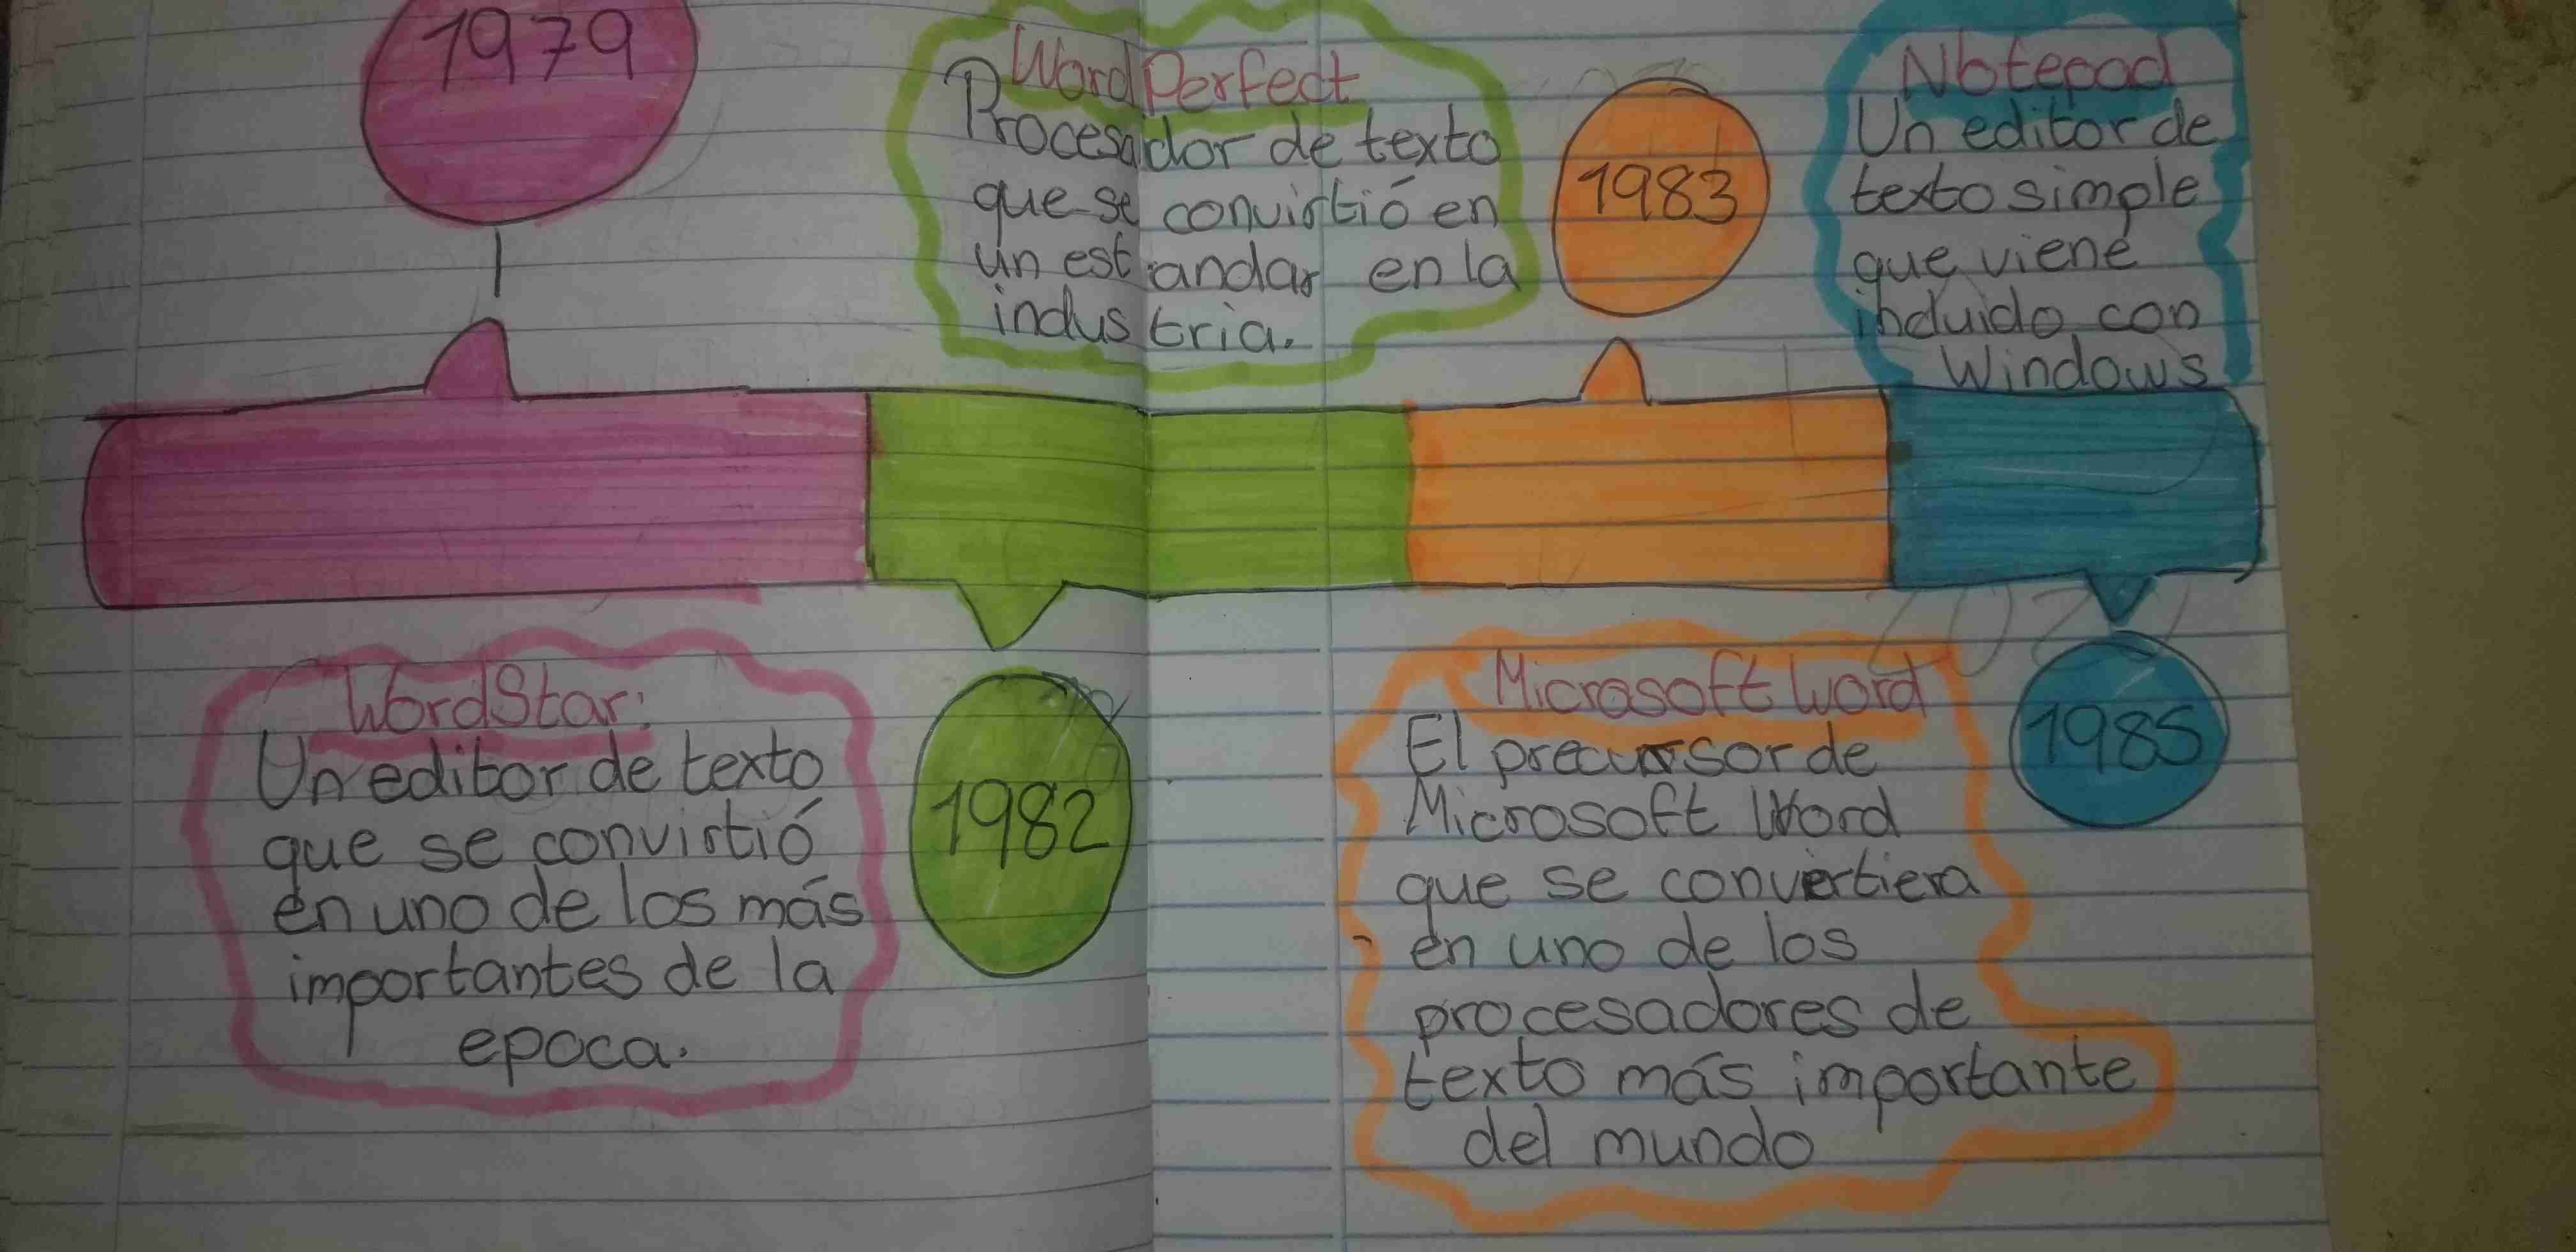 1979
WordStar:
Un editor de texto
que se convirtió
en uno de los más
importantes de la
epoca.
WordPerfect
Procesador de texto
que se convirtió en
un estandar en la
industria.
1982
1983
Microsoft Word
El precursor de
Microsoft Word
que se convertiera
en uno de los
procesadores de
texto más importante
del mundo
Notepad
Un editor de
texto simple
que viene
incluido con
Windows
1985